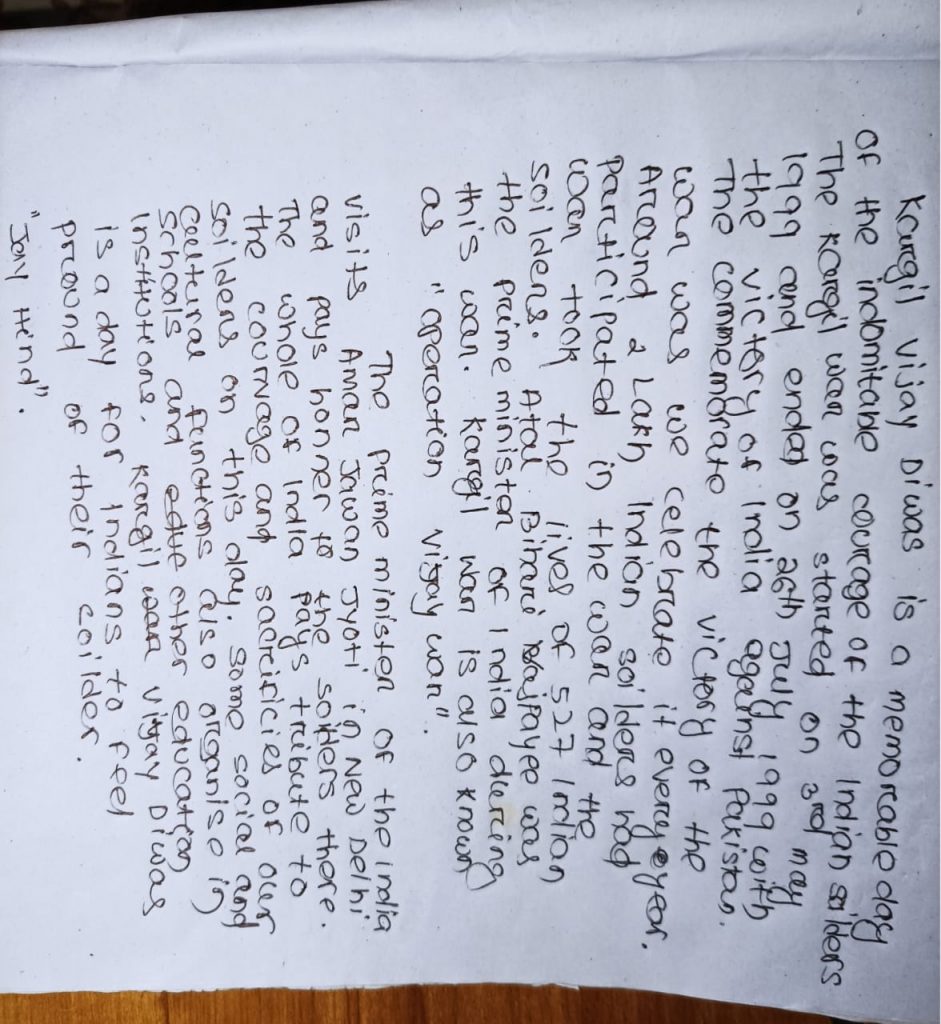 Kargil vijay Diwas is a memorable day
of the indomitable courage of the Indian soilders
The Kargil war was started on 3rd may
1999 and ended on 26th July 1999 with
the victory of India against Pakistan.
The commemorate the victory of the
war was we celebrate it everyeyear.
Around 2 Lakh Indian soilders had
participated in the war and the
war took the lives of 527 Indian
soilders. Atal Bihari Vajpayee was
the prime minister of India during
this war. Kargil war is also known
as "operation vijay war".
The prime minister of the india
visits Amar Jawan Jyoti in New Delhi
and pays honner to the solders there.
The whole of India pays tribute to
the courvage and sacrificies of our
soilders on this day. some social and
Cultural functions also organise in
schools and edue other education
Institutions. Kargil war vijay Diwas
is a day for Indians to feel
pround of their soilder.
"Jay Hind".